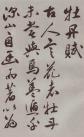 牡丹賦
古人言花者牡丹
未嘗與焉蓋遁乎
深山自幽而著